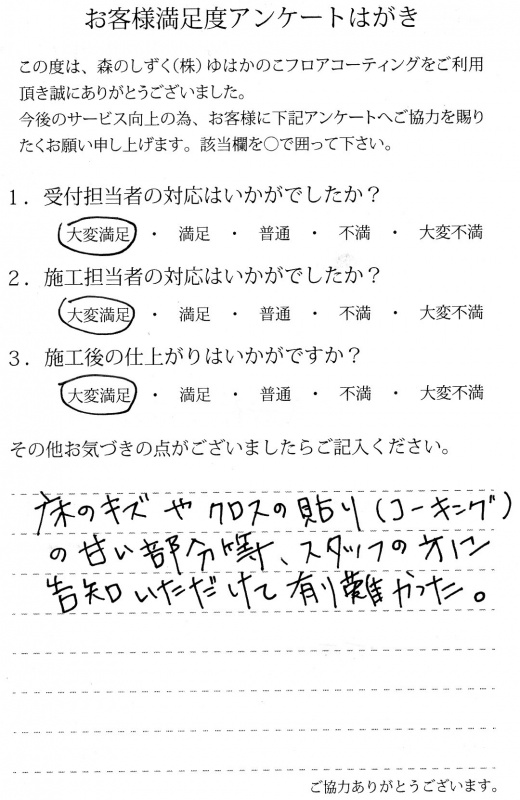 お客様満足度アンケートはがき
この度は、森のしずく(株)ゆはかのこフロアコーティングをご利用
頂き誠にありがとうございました。
今後のサービス向上の為、お客様に下記アンケートへご協力を賜り
たくお願い申し上げます。該当欄を○で囲って下さい。
1．受付担当者の対応はいかがでしたか？
大変満足 ・ 満足 ・ 普通 ・ 不満 ・ 大変不満
2．施工担当者の対応はいかがでしたか？
大変満足 ・ 満足 ・ 普通 ・ 不満 ・ 大変不満
3．施工後の仕上がりはいかがですか？
大変満足 ・ 満足 ・ 普通 ・ 不満 ・ 大変不満
その他お気づきの点がございましたらご記入ください。
床のキズやクロスの貼り(コーキング)
の甘い部分等、スタッフの方に
告知いただけて有り難かった。
ご協力ありがとうございます。